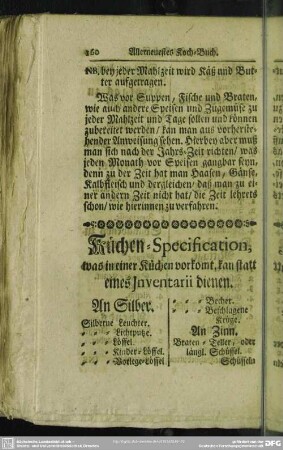 160 Allerneuestes Koch-Buch.
NB. bey jeder Mahlzeit wird Käß und But-
ter aufgetragen.
Was vor Suppen, Fische und Braten,
wie auch andere Speisen und Zugemüse zu
jeder Mahlzeit und Tage sollen und können
zubereitet werden/ kan man aus vorherste-
hender Anweisung sehen. Hierbey aber muß
man sich nach der Jahrs-Zeit richten/ was
jeden Monath vor Speisen gangbar seyn,
denn zu der Zeit hat man Haasen, Gänse,
Kalbfleisch und dergleichen/ daß man zu ei-
ner andern Zeit nicht hat/ die Zeit lehrets
schon/ wie hierinnen zu verfahren.
Küchen-Specification,
was in einer Küchen vorkomt, kan statt
eines Inventarii dienen.
An Silber.
Silberne Leuchter.
- - - Lichtputze.
- - - Löffel.
- - - Kinder-Löffel.
- - - Vorlege-Löffel
- - - Becher.
- - - Beschlagene
Krüge.
An Zinn.
Braten-Teller, oder
längl. Schüssel.
Schüsseln